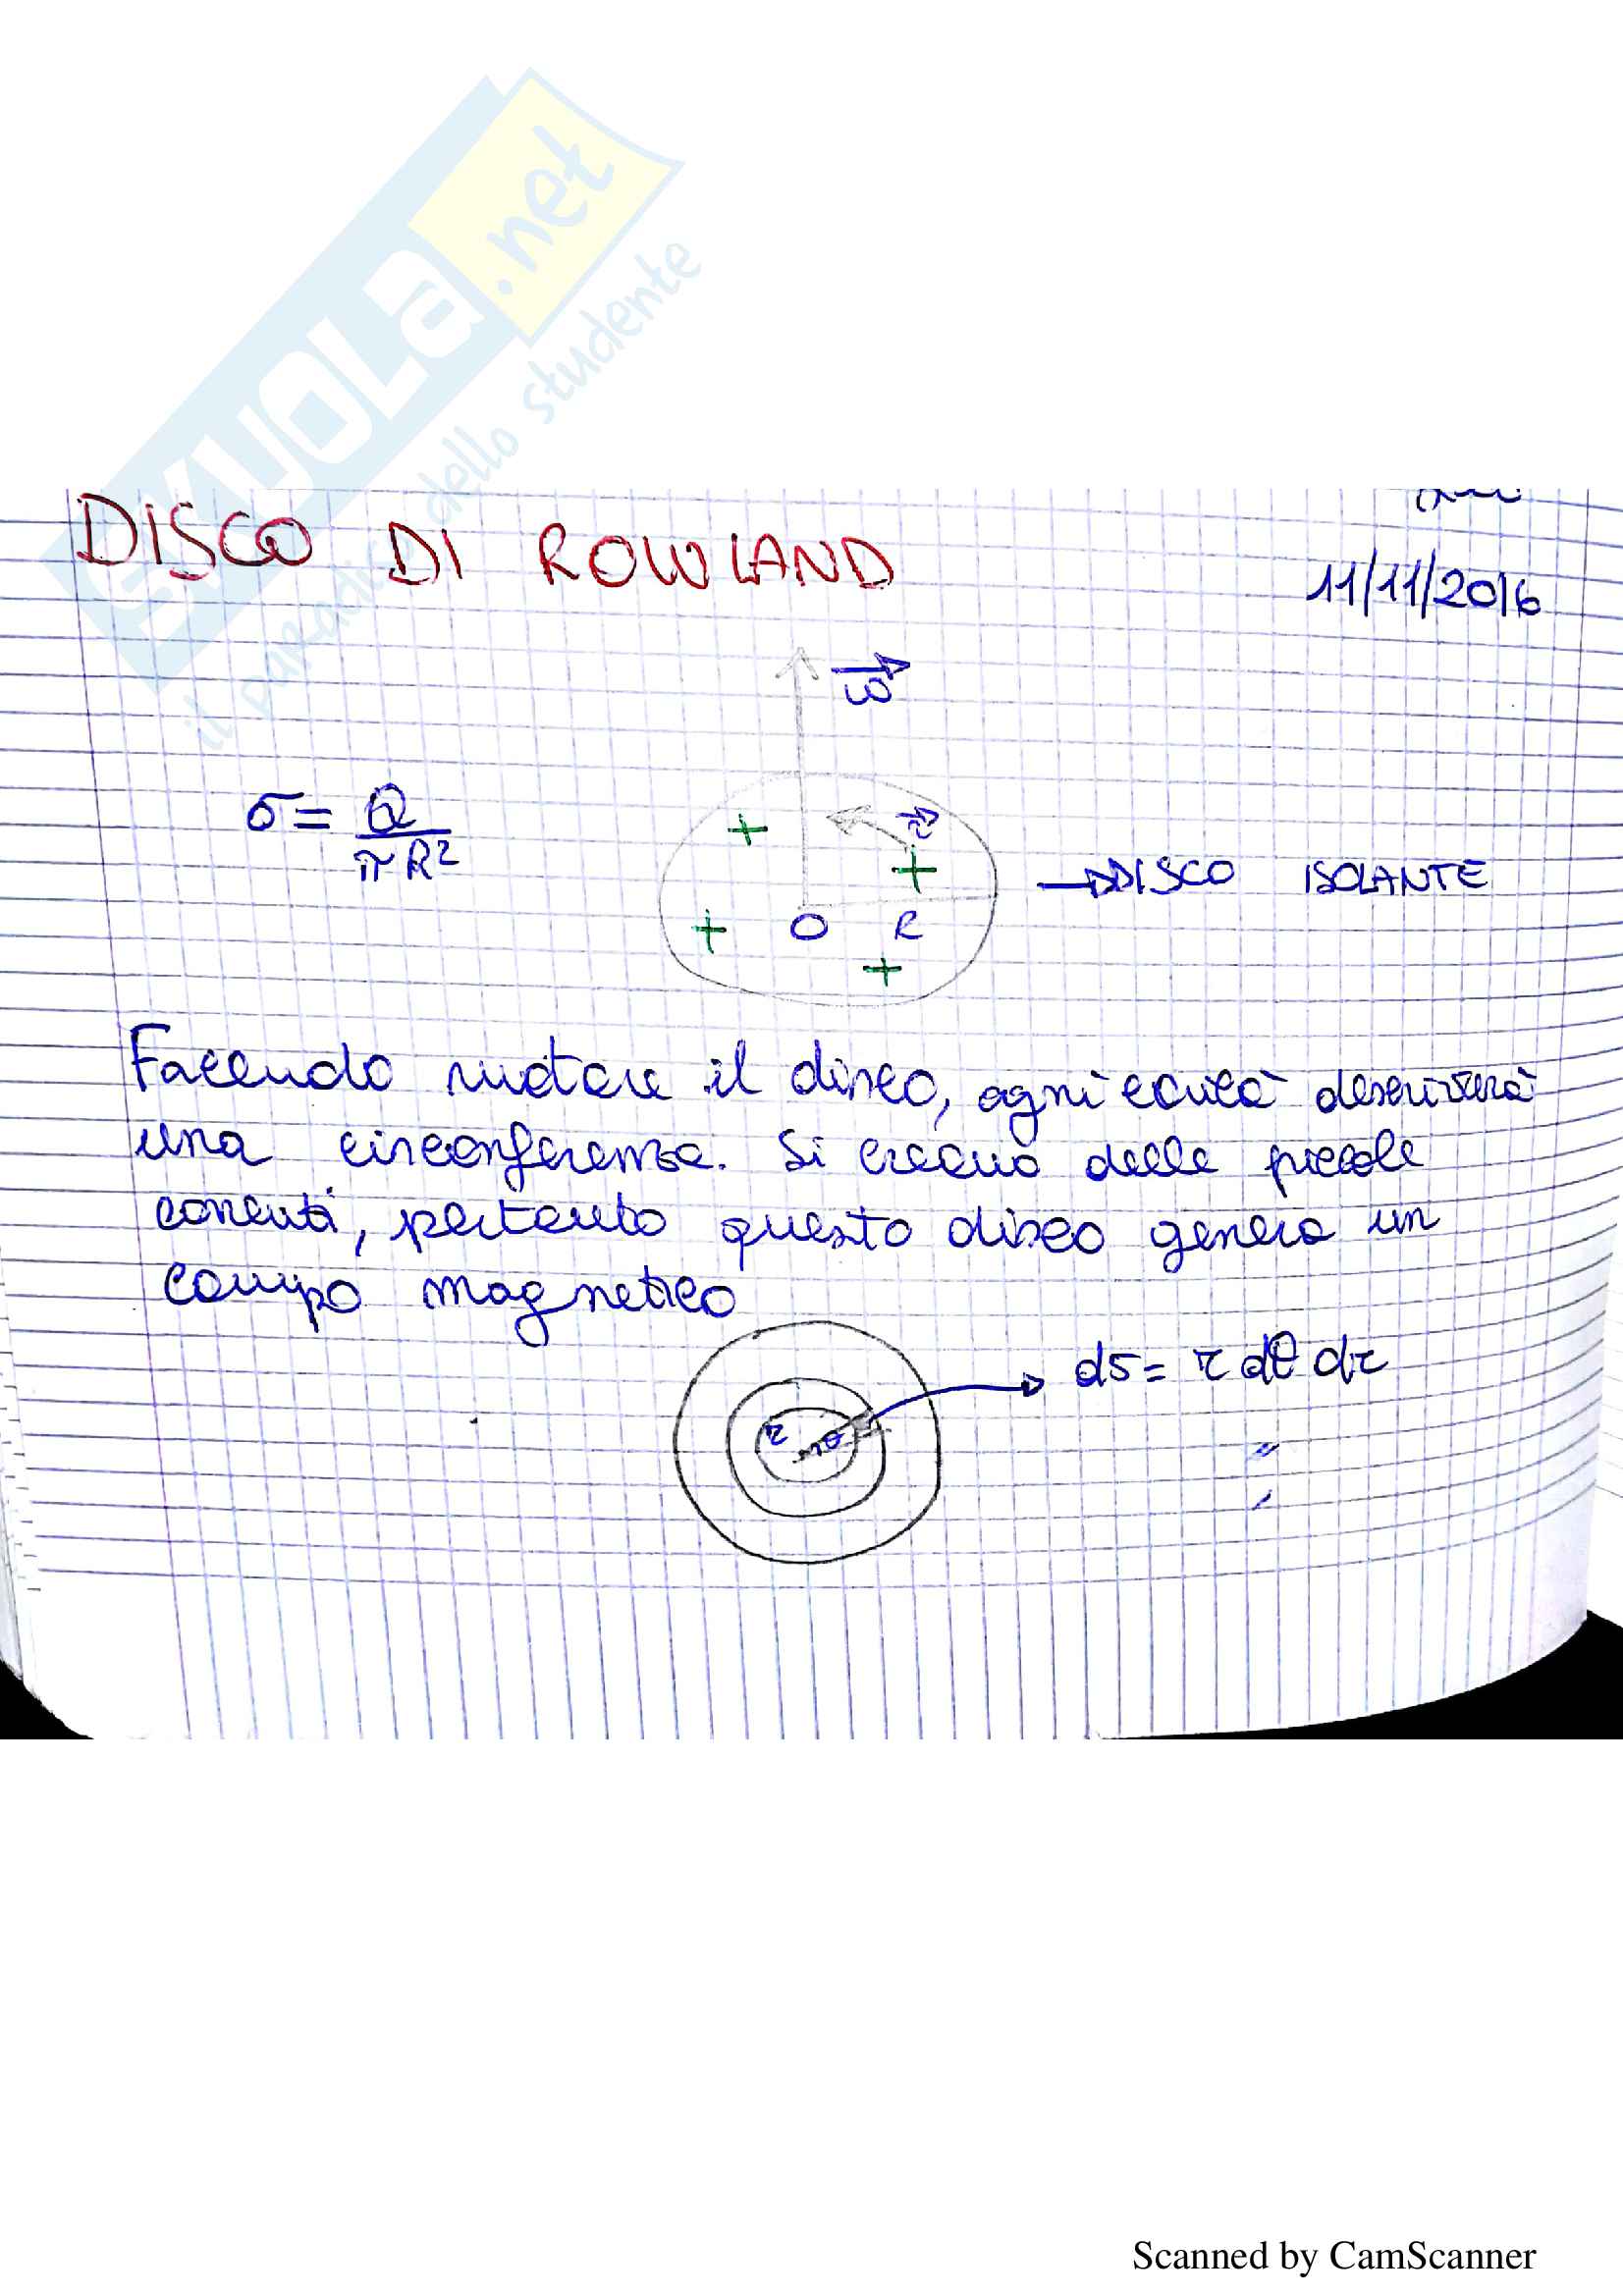 SKUOLA.net
il paradiso dello studente
DISCO DI ROWLAND
11/11/2016
ω
σ = Q / πR²
v
O R
DISCO ISOLANTE
Facendo ruotare il disco, ogni carica descriverà
una circonferenza. Si creano delle piccole
correnti, pertanto questo disco genera un
campo magnetico
dS = r dθ dr
r θ
Scanned by CamScanner